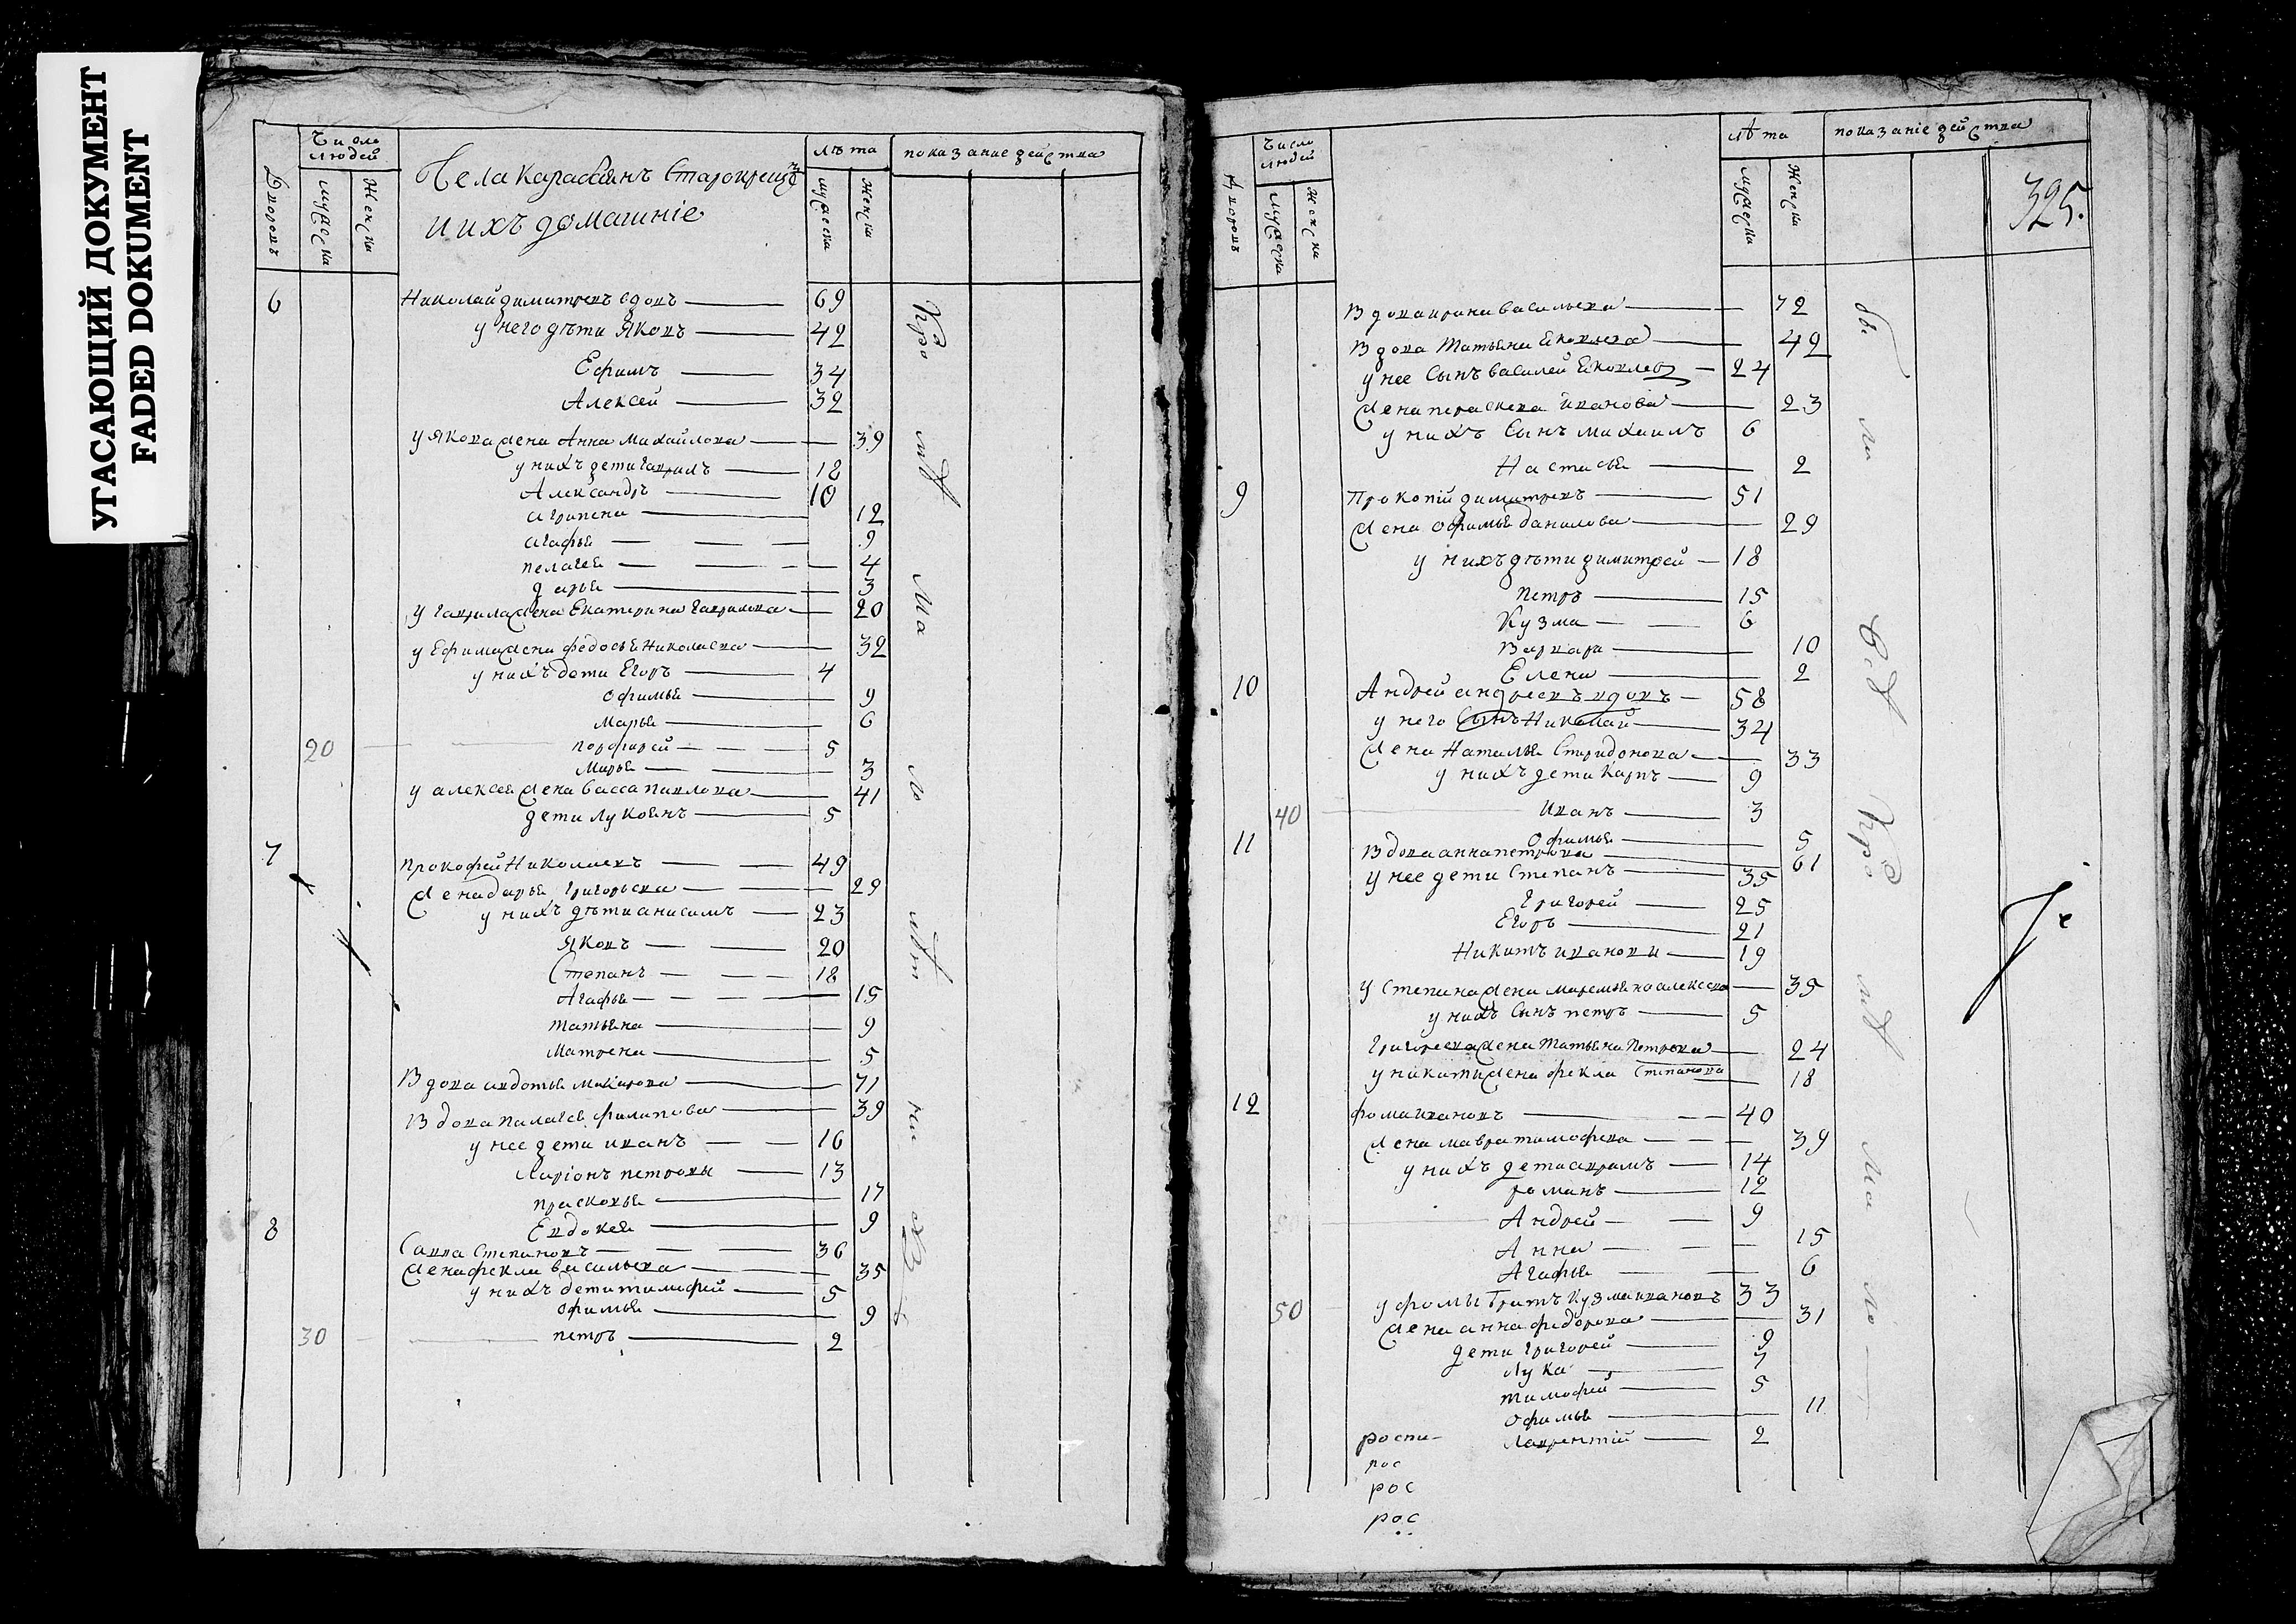 УГАСАЮЩИЙ ДОКУМЕНТ
FADED DOKUMENT
Дворовъ
Число людей
мужеска
Женска
Села Старокреще
и ихъ домашніе
лѣта
мужеска
Женска
показание действа
6 Николай димитревъ вдовъ 69
у него дѣти Яковъ 42
Ефимъ 34
Алексей 32
у якова жена Анна Михайлова 39
у нихъ дети гаврилъ 18
Александръ 10
агрипена 12
агафья 9
пелагея 4
дарья 3
у гаврила жена Екатерина гаврилова 20
у Ефима жена федосья Николаева 32
у нихъ дети Егоръ 4
офимья 9
Марья 6
20 порфирей 5
Марья 3
у алексея жена васса павлова 41
дети Лукоянъ 5
7 прокофей Николаевъ 49
жена дарья григорьева 29
у нихъ дѣти анисимъ 23
яковъ 20
Степанъ 18
Агафья 15
татьяна 9
Матрена 5
Вдова авдотья Макарова 71
Вдова палагея филипова 39
у нее дети иванъ 16
Ларіонъ петровы 13
прасковья 17
Евдокея 9
8 Савва Степановъ 36
жена фекла васильева 35
у нихъ дети тимофей 5
офимья 9
30 петръ 2
Дворовъ
Число людей
мужеска
Женска
лѣта
мужеска
Женска
показаніе действа
325.
Вдова ирина васильева 72
Вдова Татьяна яковлева 49
у нее Сынъ василей яковлевъ 24
жена параскева иванова 23
у нихъ Сынъ михаилъ 6
Настасья 2
9 Прокопій димитревъ 51
жена офимья данилова 29
у нихъ дѣти димитрей 18
петръ 15
Кузма 6
Варвара 10
Елена 2
10 Андрей андреевъ вдовъ 58
у него Сынъ Николай 34
жена Наталья Спиридонова 33
у нихъ дети Карпъ 9
40 иванъ 3
офимья 5
11 Вдова анна петрова 61
у нее дети Степанъ 35
григорей 25
Егоръ 21
Никитъ ивановы 19
у Степана жена маремьяна алексева 35
у нихъ Сынъ петръ 5
григорева жена татьяна Петрова 24
у никиты жена фекла Степанова 18
12 фома ивановъ 40
жена мавра тимофева 39
у нихъ дети аврамъ 14
романъ 12
Андрей 9
Анна 15
Агафья 6
50 у фомы братъ кузма ивановъ 33
жена анна федорова 31
дети григорей 9
Лука 7
тимофей 5
офимья 11
роспи- Лаврентій 2
рос
рос
рос